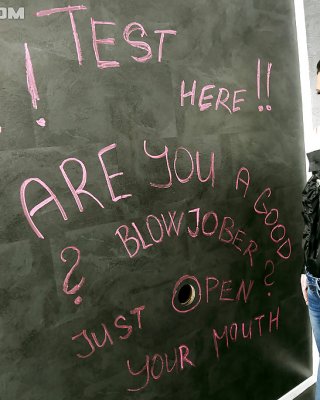 OM
TEST
! HERE!!
ARE YOU A GOOD
? BLOWJOBER?
JUST OPEN
YOUR MOUTH